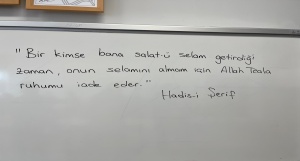 "Bir kimse bana salat-ü selam getirdiği
zaman, onun selamını almam için Allah Teala
ruhumu iade eder."
Hadis-i Şerif